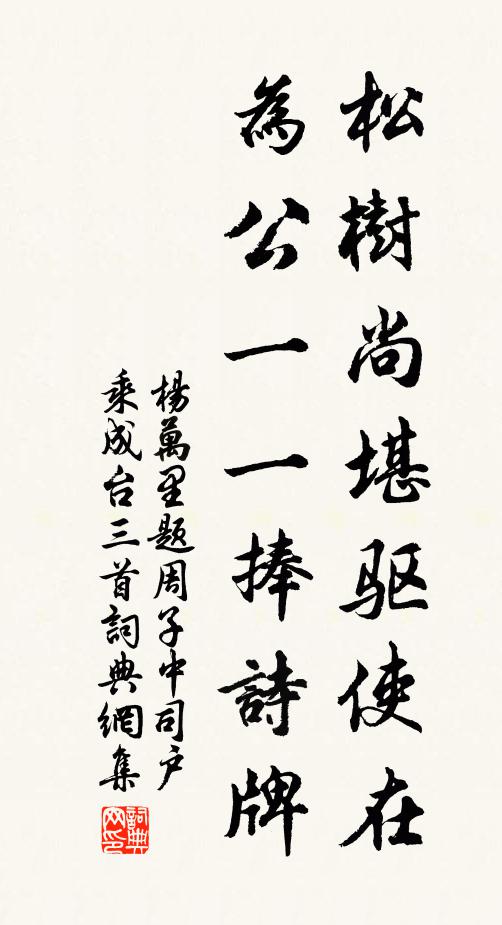 松樹尚堪驱使在
為公一一捧詩牌
楊萬里题周子中司户
乘成台三首詞典網集
詞典
网印